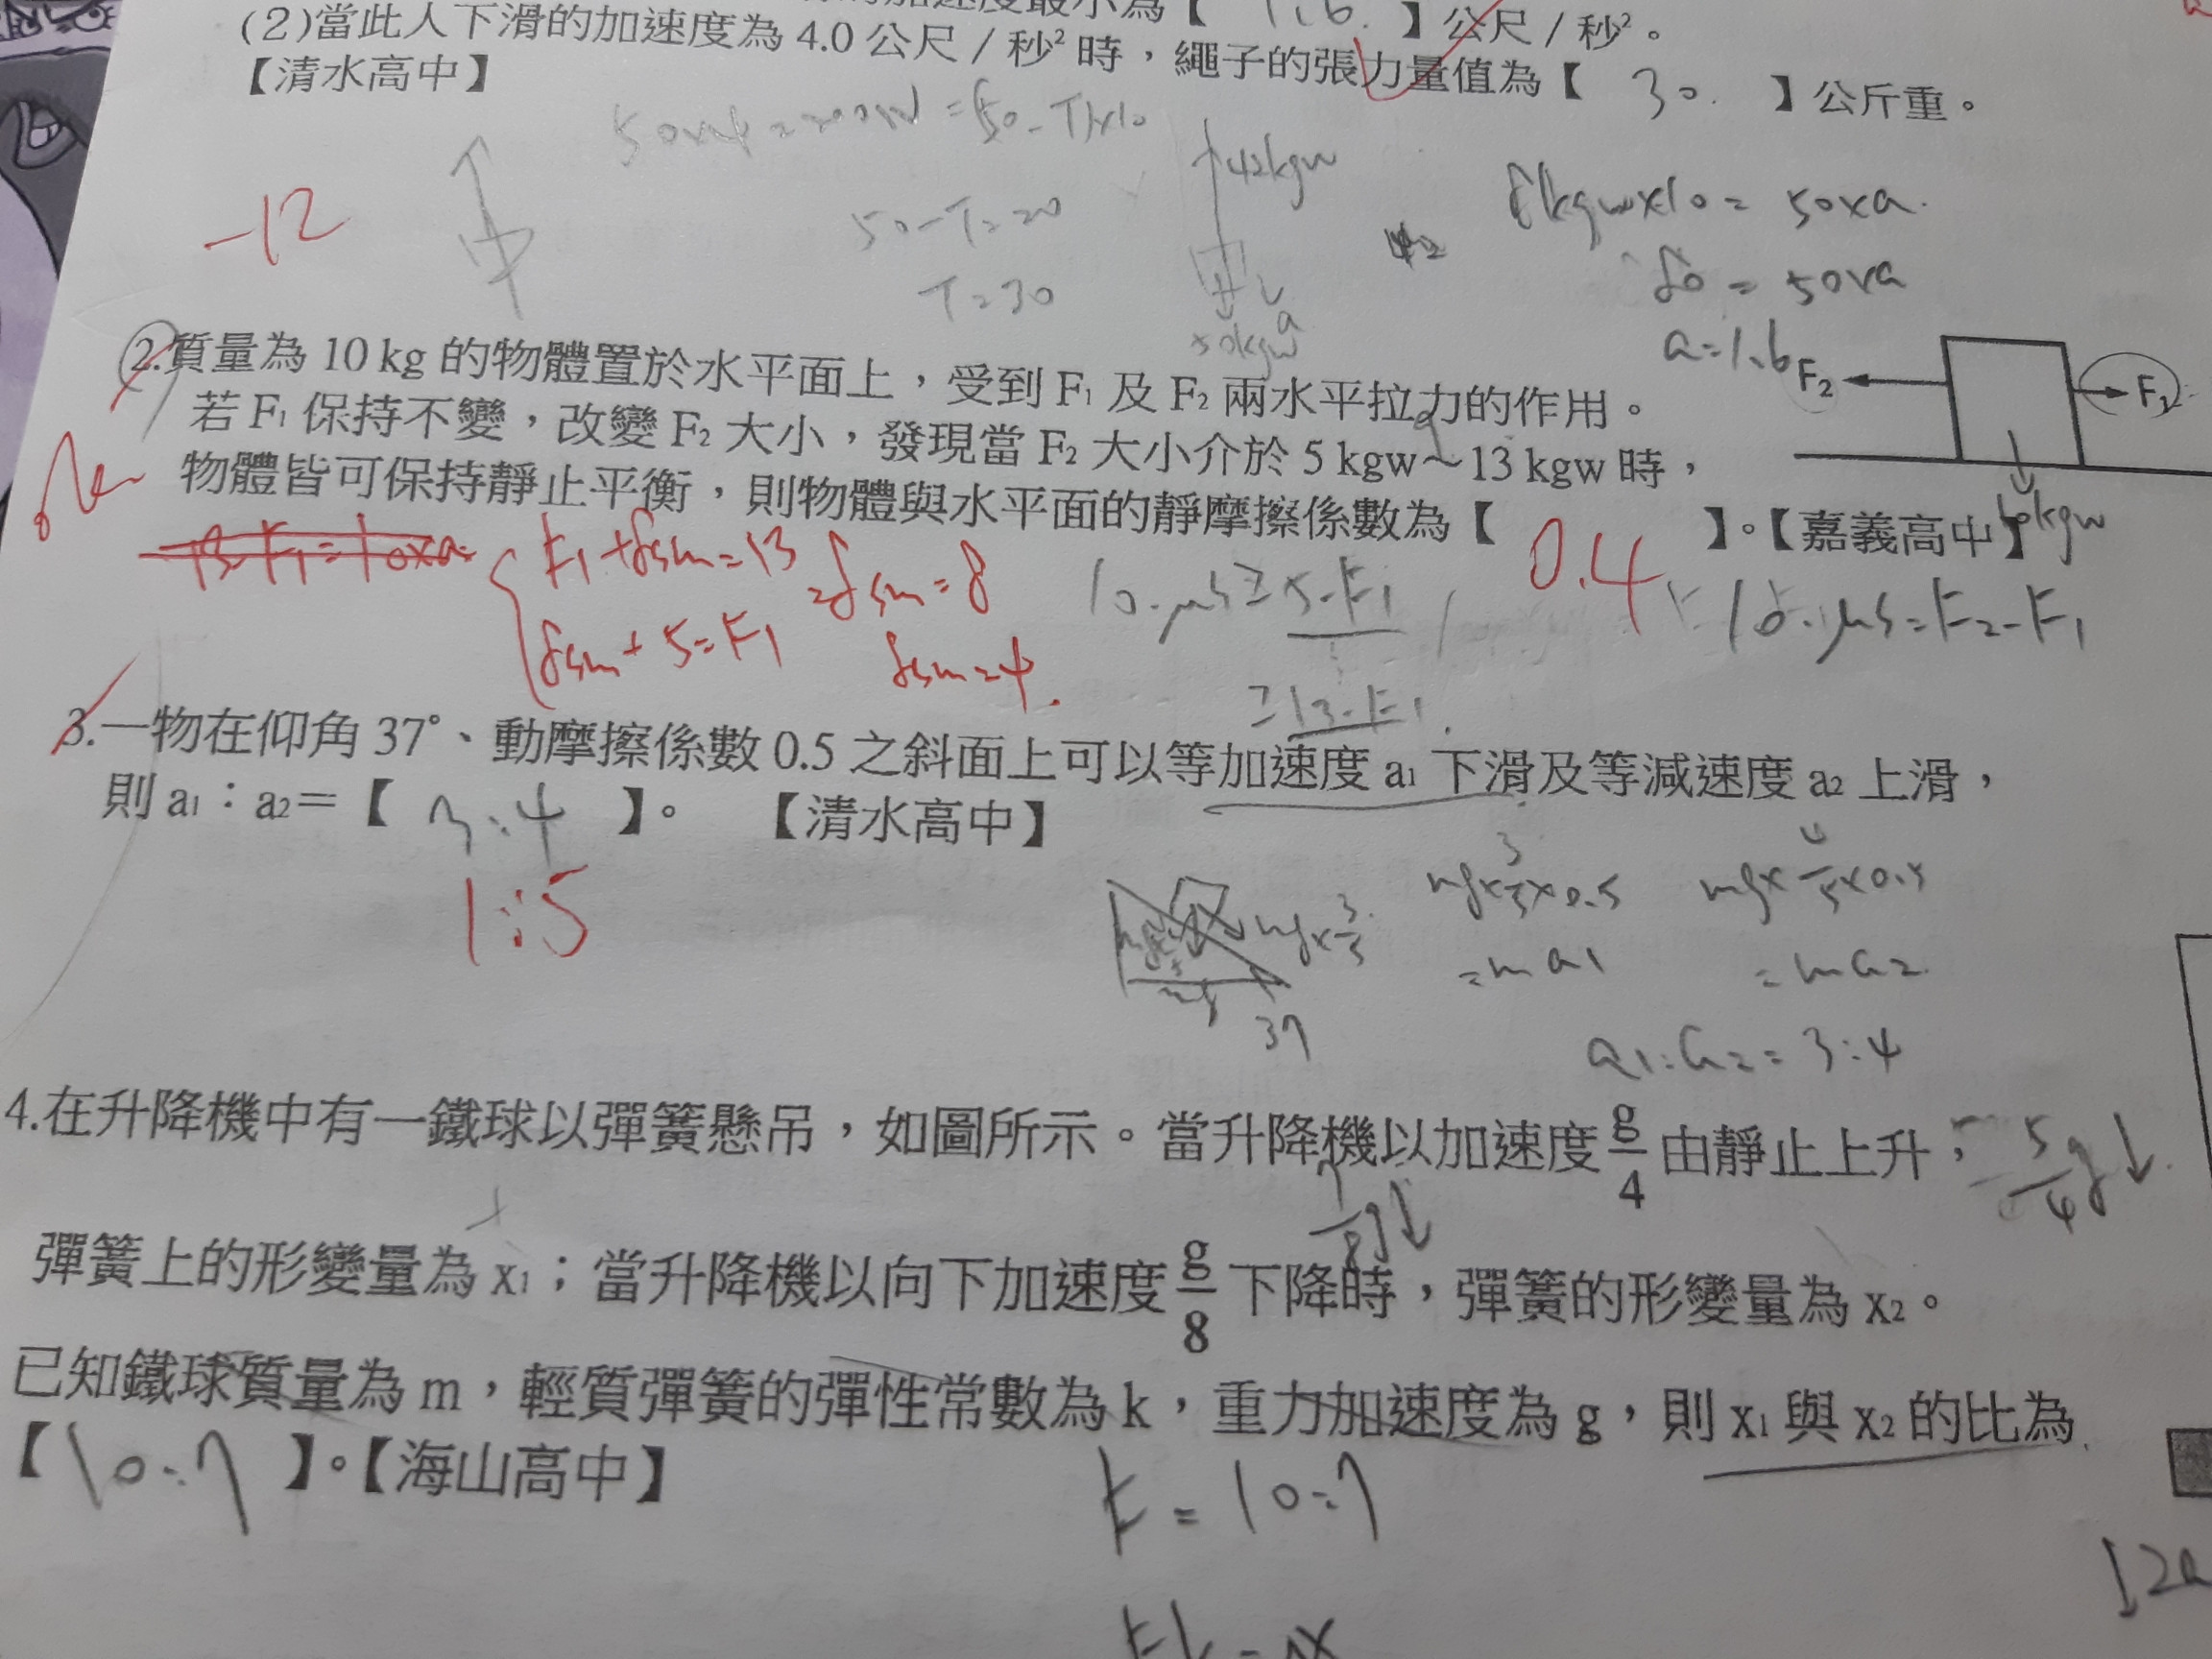 【 1.6. 】公尺／秒²。
(2)當此人下滑的加速度為 4.0 公尺／秒² 時，繩子的張力量值為【 30. 】公斤重。
【清水高中】
50×4=200N=(50-T)×10
42kgw
8kgw×10= 50×a.
-12
50-T=20
80 = 50×a
T=30
50kgw
a
a=1.6
2.質量為 10 kg 的物體置於水平面上，受到 F₁ 及 F₂ 兩水平拉力的作用。
F₂
F₁
若 F₁ 保持不變，改變 F₂ 大小，發現當 F₂ 大小介於 5 kgw～13 kgw 時，
物體皆可保持靜止平衡，則物體與水平面的靜摩擦係數為【 0.4 】。【嘉義高中】
10kgw
13-F₁=10×a
F₁+fsm=13
=fsm=8
fsm+5=F₁
fsm=4.
10.μs≥5-F₁
10.μs=F₂-F₁
≥13-F₁.
3.一物在仰角 37°、動摩擦係數 0.5 之斜面上可以等加速度 a₁ 下滑及等減速度 a₂ 上滑，
則 a₁：a₂＝【 3:4 】。 【清水高中】
1:5
mg×3/5
mg
37
mg×3/5×0.5
=ma1
mg×4/5×0.5
=ma2
a1:a2=3:4
4.在升降機中有一鐵球以彈簧懸吊，如圖所示。當升降機以加速度 g/4 由靜止上升，
5/4g↓
7/8g↓
彈簧上的形變量為 x₁；當升降機以向下加速度 g/8 下降時，彈簧的形變量為 x₂。
已知鐵球質量為 m，輕質彈簧的彈性常數為 k，重力加速度為 g，則 x₁ 與 x₂ 的比為
【 10:7 】。【海山高中】
F=10:7
↓2a